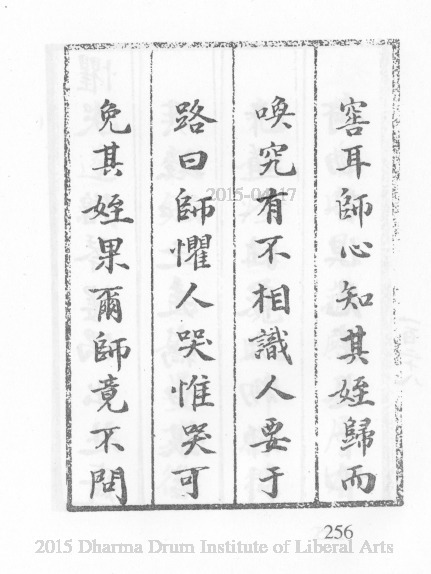 窖耳師心知其姪歸而
喚究有不相識人要于
路曰師懼人哭惟哭可
免其姪果爾師竟不問
2015-04-17
256
2015 Dharma Drum Institute of Liberal Arts